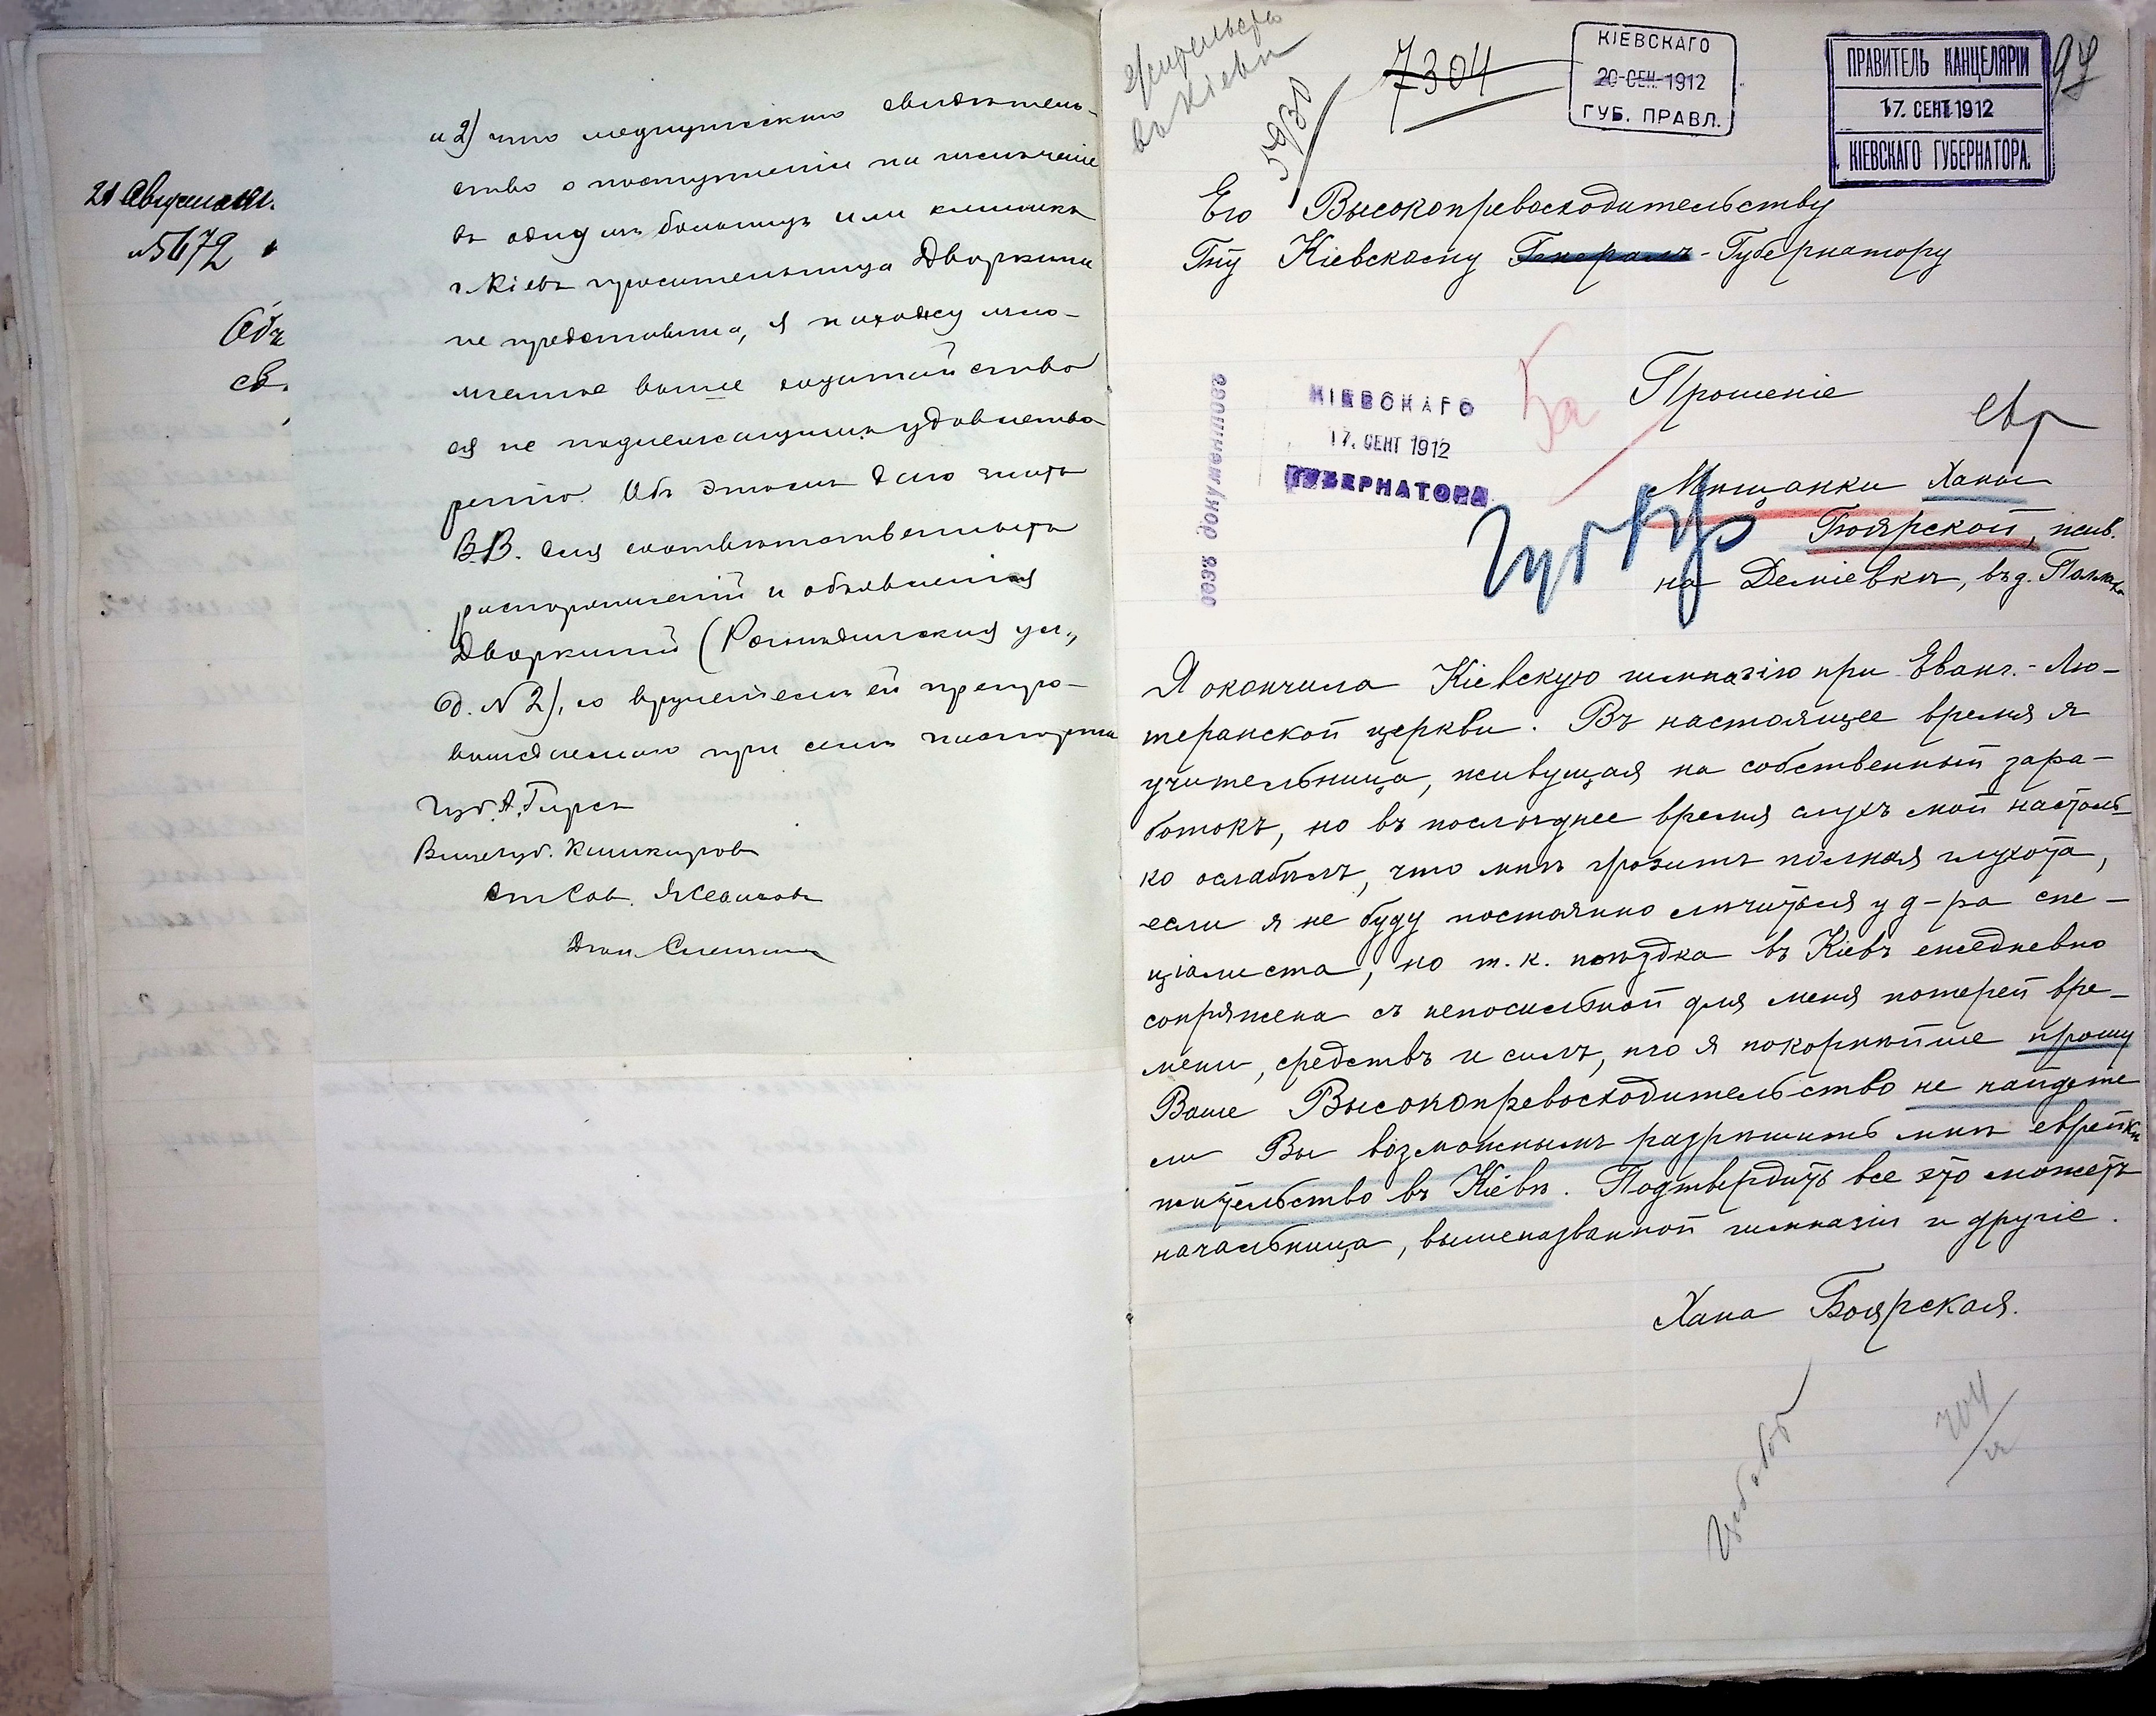 21 Августа
№ 5672
Объ
св.
и 2) что медицинскаго свидѣтель-
ства о поступленіи на излеченіе
въ одну изъ больницъ или клиникъ
г. Кіева просительница Дворкина
не представила, я нахожу изло-
женное выше ходатайство
ея не подлежащимъ удовлетво
ренію. Объ этомъ даю знать
В.В. для соотвѣтственныхъ
распоряженій и объявленія
Дворкиной (Рогнѣдинская ул.,
д. № 2), съ врученіемъ ей препро-
вождаемаго при семъ паспорта
Губ. А. Гирсъ
Вицегуб. Кашкаровъ
жительство
въ Кіевѣ
5930
7304
КІЕВСКАГО
20 СЕН 1912
ГУБ. ПРАВЛ.
ПРАВИТЕЛЬ КАНЦЕЛЯРІИ
17. СЕНТ 1912
КІЕВСКАГО ГУБЕРНАТОРА.
97
Его Высокопревосходительству
Гну Кіевскому Генералъ-Губернатору
КІЕВСКАГО
17. СЕНТ 1912
ГУБЕРНАТОРА
безъ документовъ
Прошеніе
евр
Мѣщанки Ханы
Боярской, жив.
на Деміевкѣ, въ д.
Я окончила Кіевскую гимназію при Еванг.-Лю-
теранской церкви. Въ настоящее время я
учительница, живущая на собственный зара-
ботокъ, но въ послѣднее время слухъ мой настоль-
ко ослабѣлъ, что мнѣ грозитъ полная глухота,
если я не буду постоянно лѣчиться у д-ра спе-
ціалиста, но т. к. поѣздка въ Кіевъ ежедневно
сопряжена съ непосильной для меня потерей вре-
мени, средствъ и силъ, то я покорнѣйше прошу
Ваше Высокопревосходительство не найдете
ли Вы возможнымъ разрѣшить мнѣ еврейкѣ
жительство въ Кіевѣ. Подтвердить все это можетъ
начальница, вышеназванной гимназіи и другіе.
Хана Боярская.